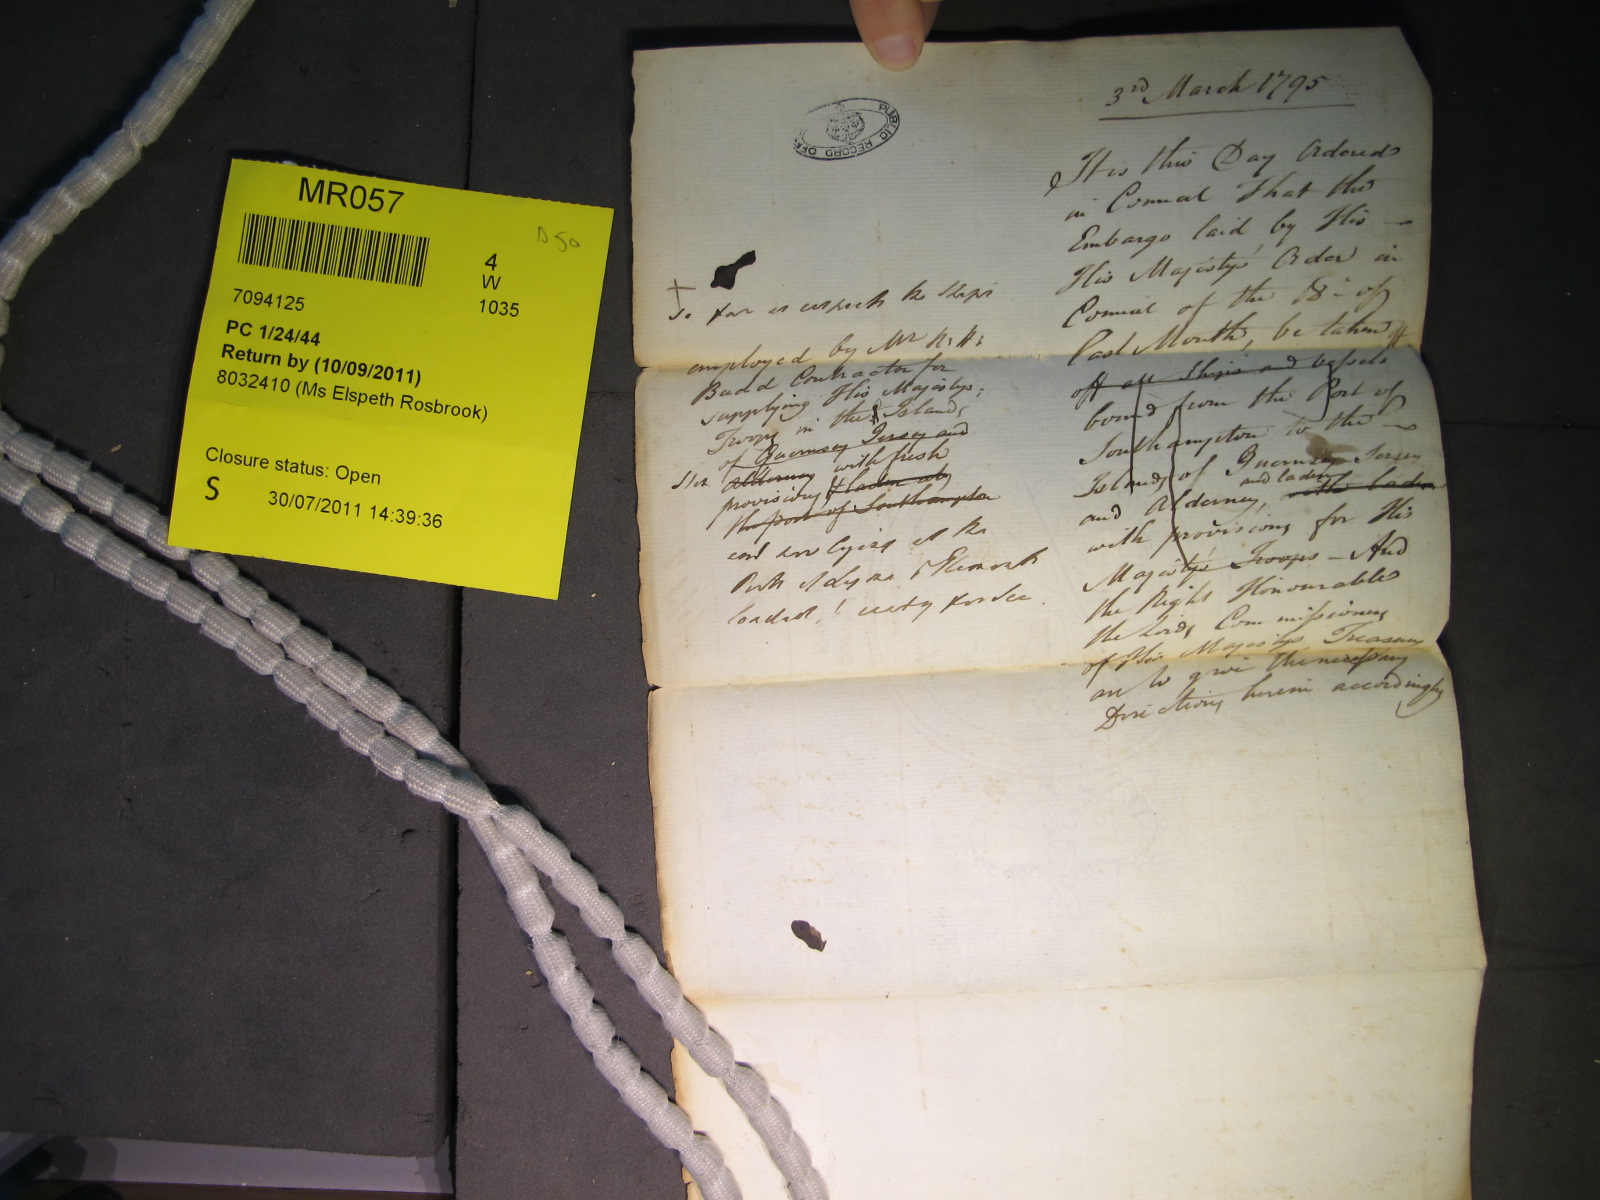 MR057
D 50
4
W
1035
7094125
PC 1/24/44
Return by (10/09/2011)
8032410 (Ms Elspeth Rosbrook)
Closure status: Open
S
30/07/2011 14:39:36
PUBLIC RECORD OFFICE
3rd March 1795
It is this Day Ordered
in Council That the
Embargo laid by His
His Majesty's Order in
Council of the 18th of
last Month, be taken
off all Ships and vessels
bound from the Port of
Southampton to the
Islands of Guernsey Jersey
and laden
and Alderney, laden
with provisions for His
Majesty's Troops - And
the Right Honourable
the Lords Commissioners
of His Majesty's Treasury
are to give the necessary
Directions herein accordingly
+
So far as respects the Ships
employed by Mr
Budd Contractor for
supplying His Majesty's
Troops in the Islands
of Guernsey Jersey and
Alderney with fresh
provisions & laden at
the port of Southampton
and are lying at the
Ports of Lyme & Exmouth
loaded, & ready for Sea.